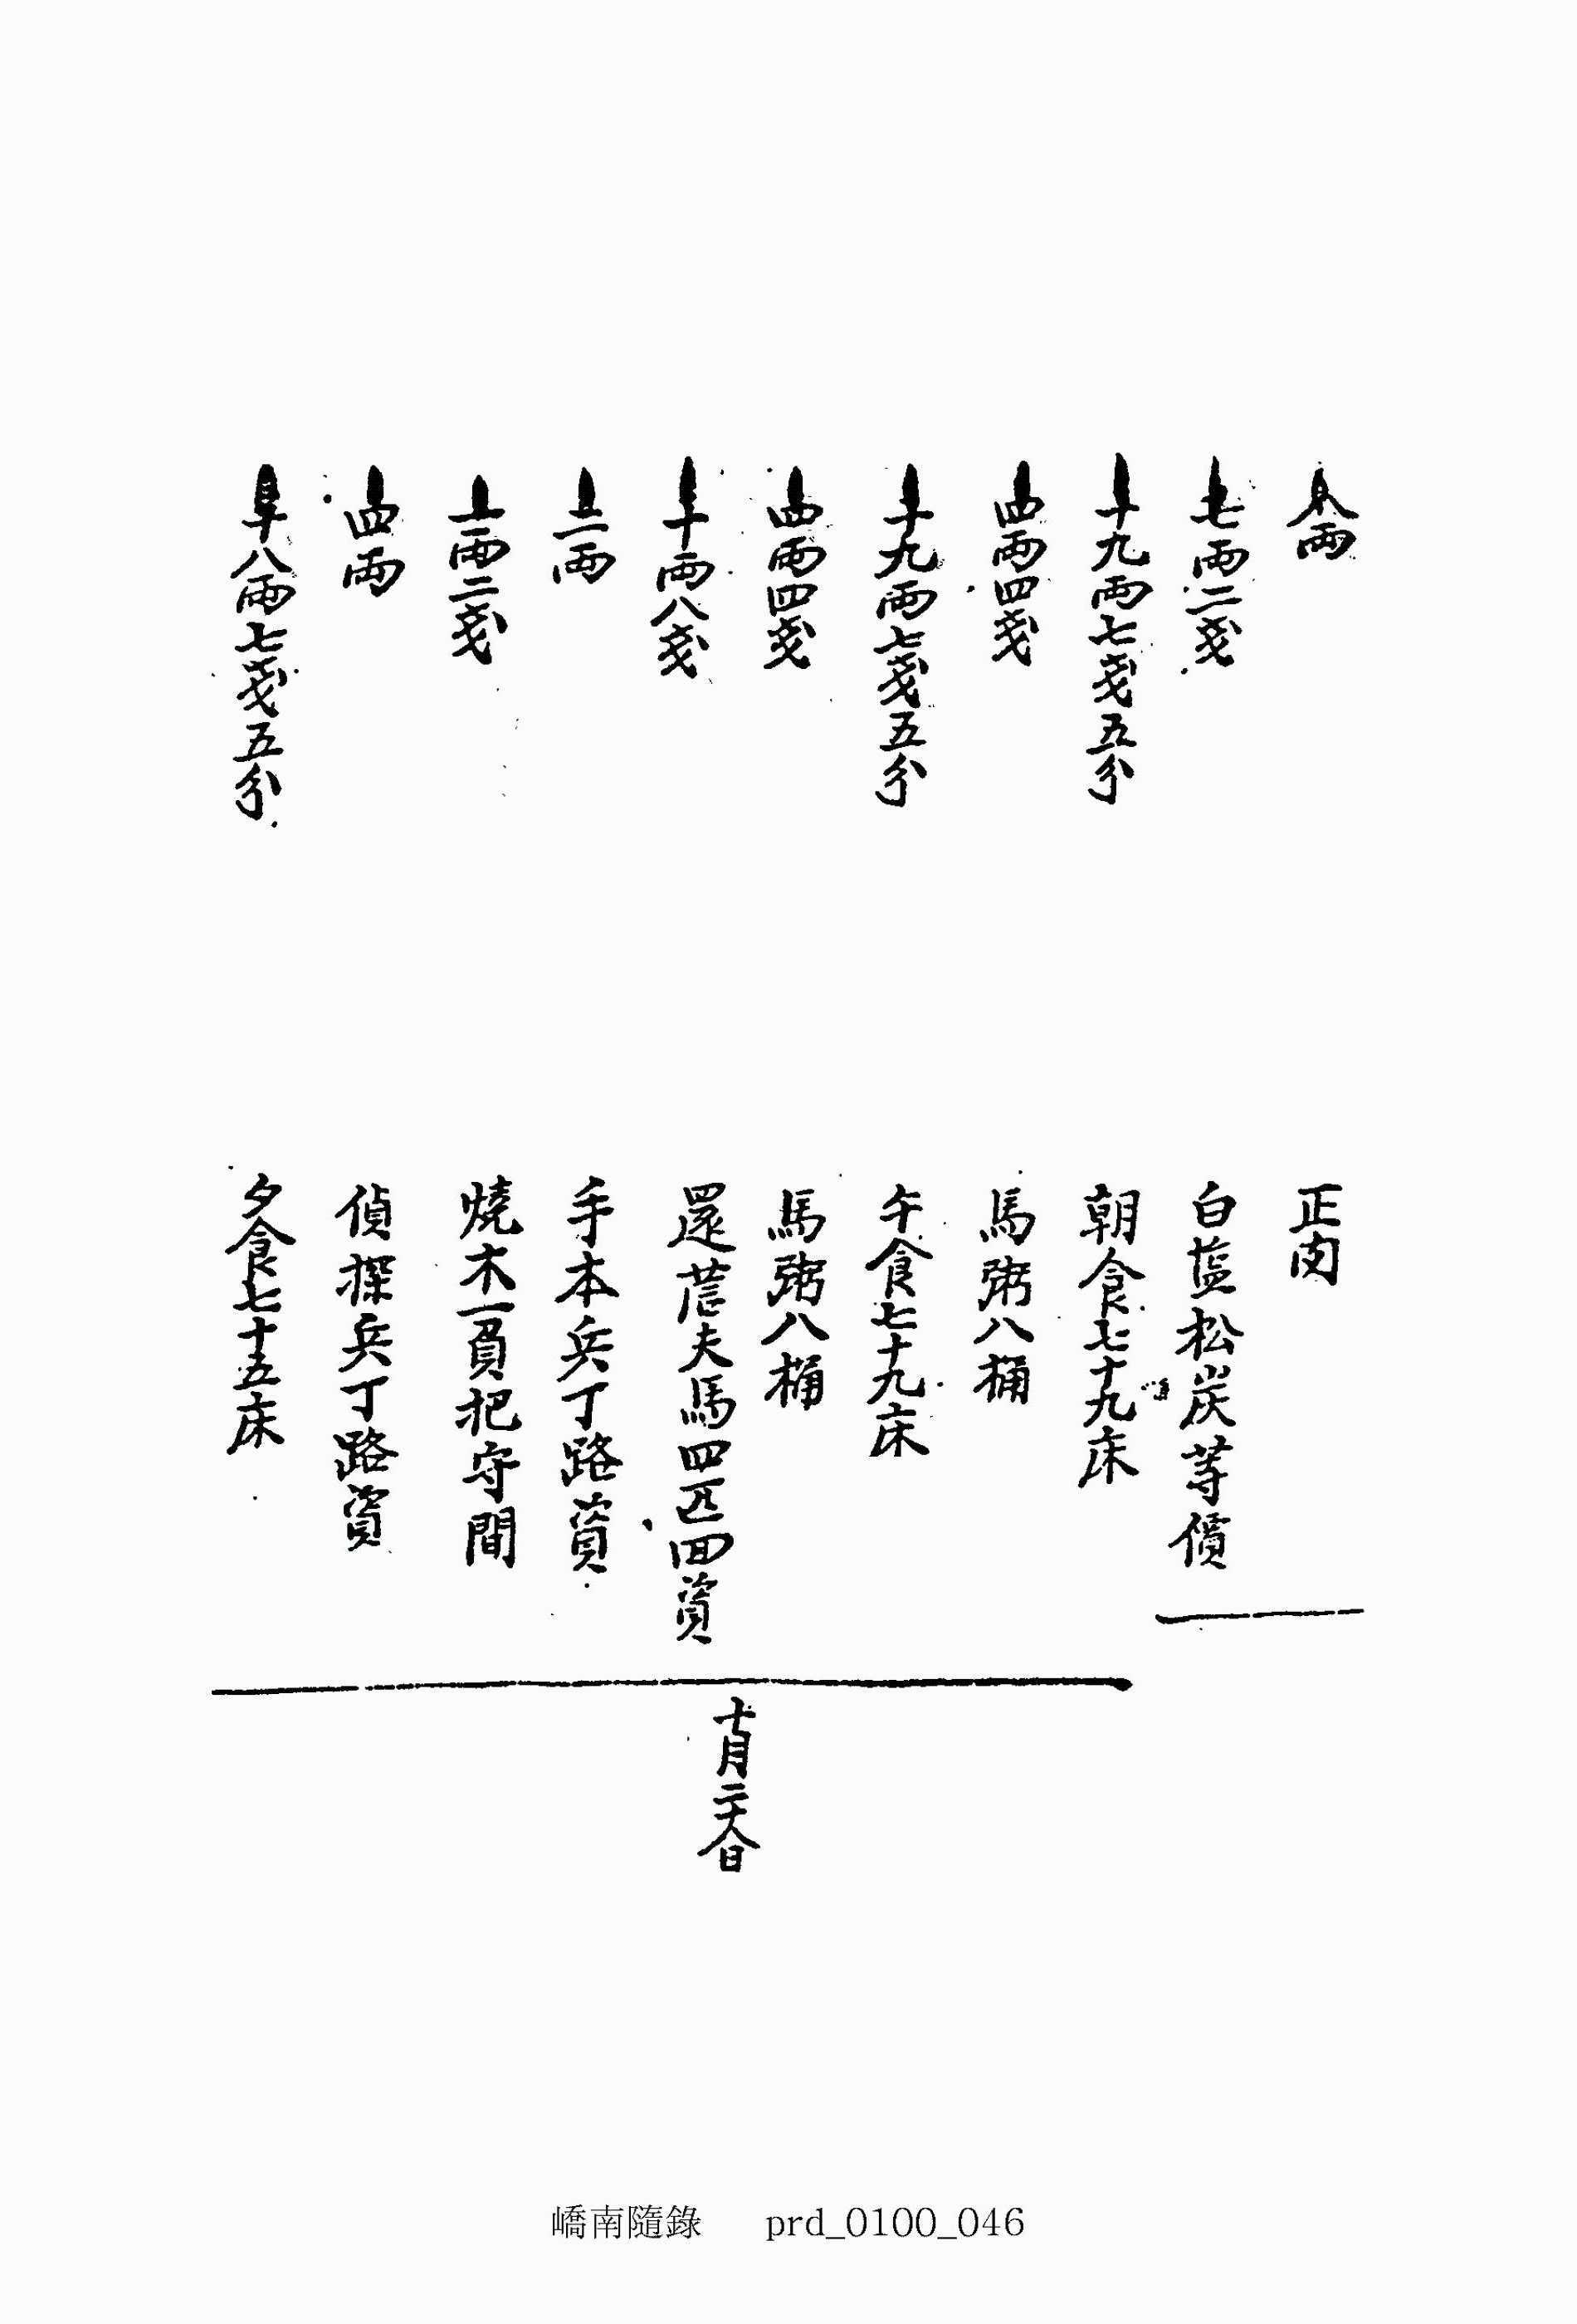 八両 正肉
七両二戔 白塩松炭等價
十九両七戔五分 朝食七十九床
四両四戔 馬粥八桶
十九両七戔五分 午食七十九床
四両四戔 馬粥八桶
十両八戔 還營夫馬四匹回資
両 手本兵丁路資
一両二戔 燒木一負把守間
四両 偵探兵丁路資
十八両七戔五分 夕食七十五床
十月二十八日
嶠南隨錄 prd_0100_046